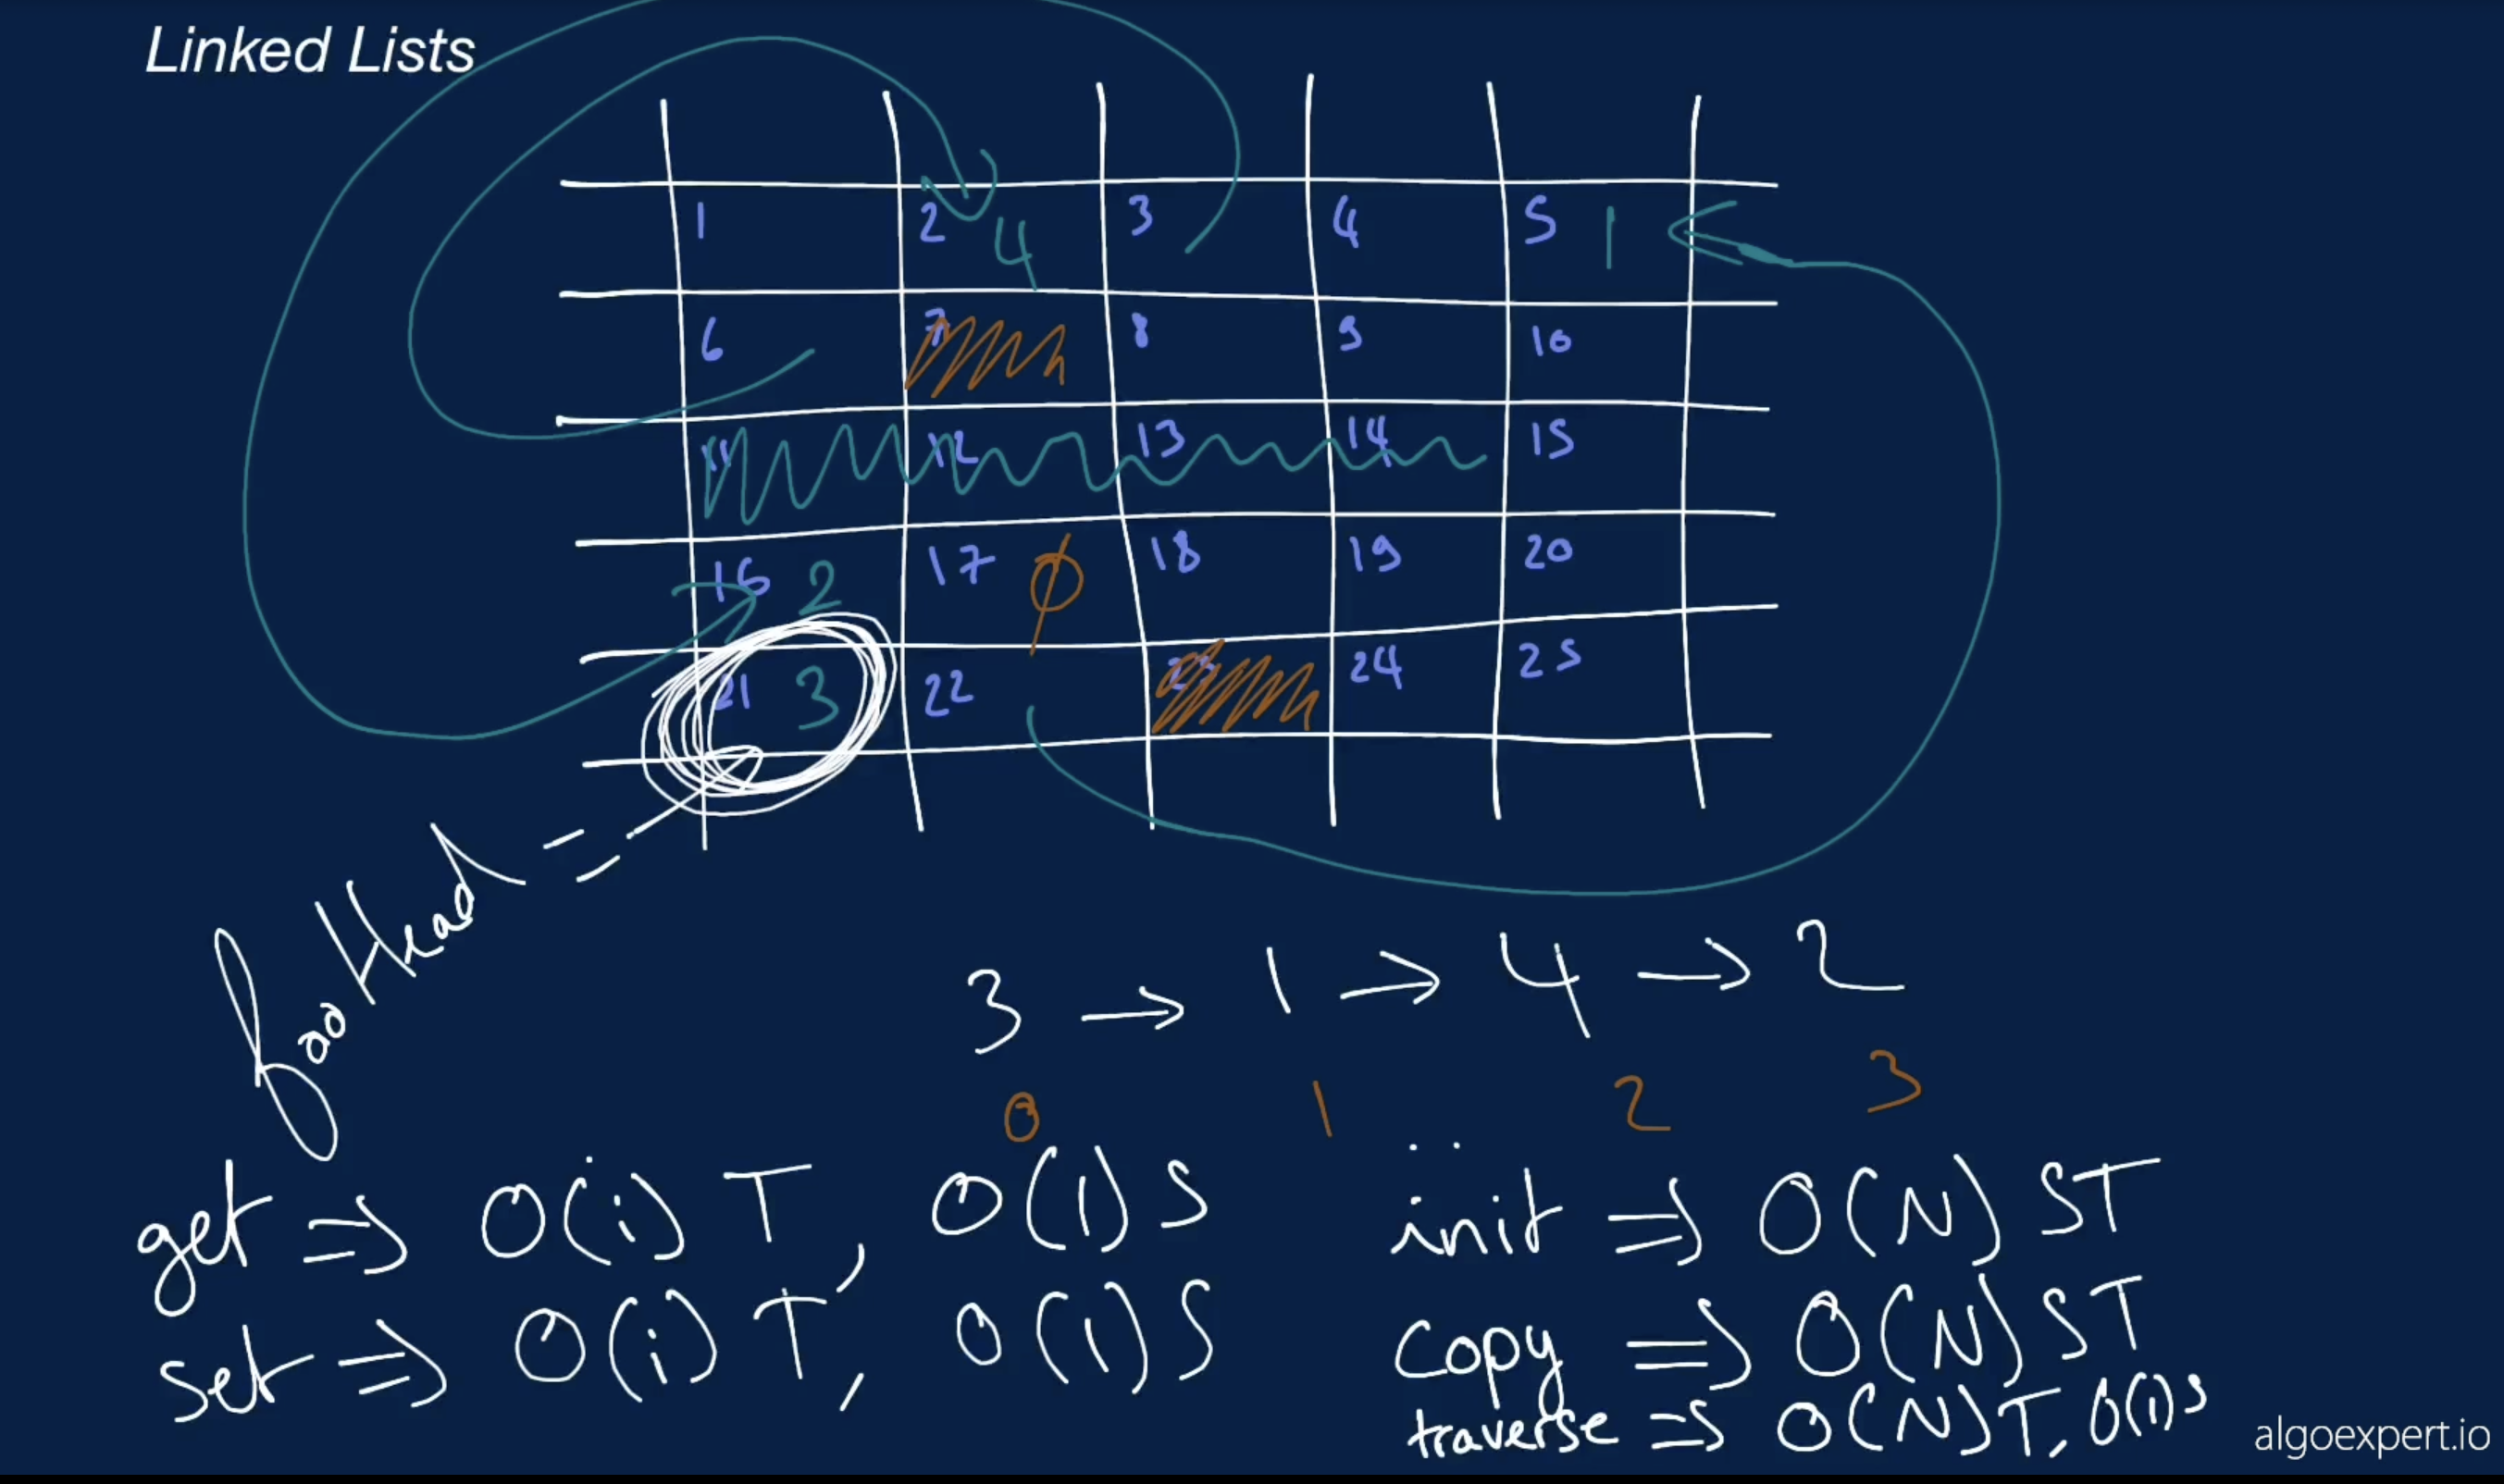 Linked Lists
1 2 4 3 4 5 1
6 7 8 9 10
11 12 13 14 15
16 2 17 φ 18 19 20
21 3 22 23 24 25
fooHead =
3 → 1 → 4 → 2
0 1 2 3
get => O(i) T, O(1) S
init => O(N) ST
set => O(i) T, O(1) S
copy => O(N) ST
traverse => O(N) T, O(1) S
algoexpert.io